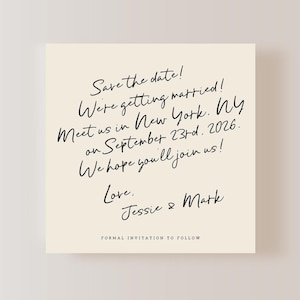 Save the date!
We're getting married!
Meet us in New York, NY
on September 23rd, 2026.
We hope you'll join us!
Love,
Jessie & Mark
FORMAL INVITATION TO FOLLOW